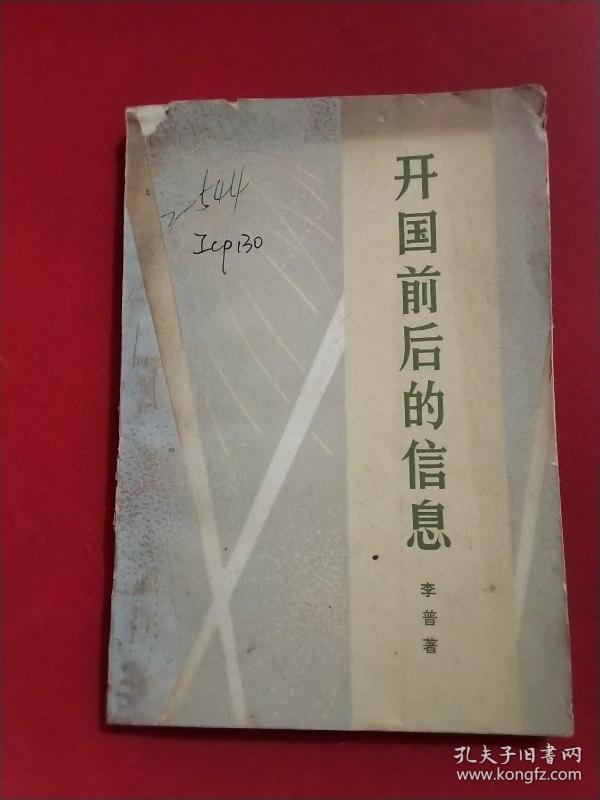 544
开国前后的信息
李普著
孔夫子旧书网
www.kongfz.com